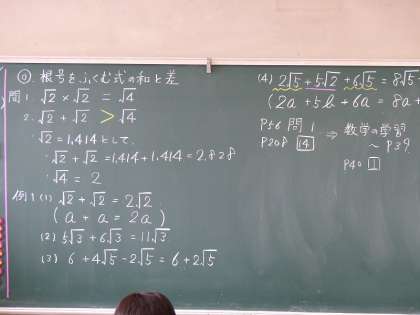 ◎ 根号をふくむ式の和と差
問1. √2 × √2 = √4
2. √2 + √2 > √4
・√2 = 1.414 として、
・√2 + √2 = 1.414 + 1.414 = 2.828
・√4 = 2
例1 (1) √2 + √2 = 2√2
(a + a = 2a)
(2) 5√3 + 6√3 = 11√3
(3) 6 + 4√5 - 2√5 = 6 + 2√5
(4) 2√5 + 5√2 + 6√5 = 8√5
(2a + 5b + 6a = 8a
P56 問1
P208 14
⇒ 数学の学習
~ P39
P40 1